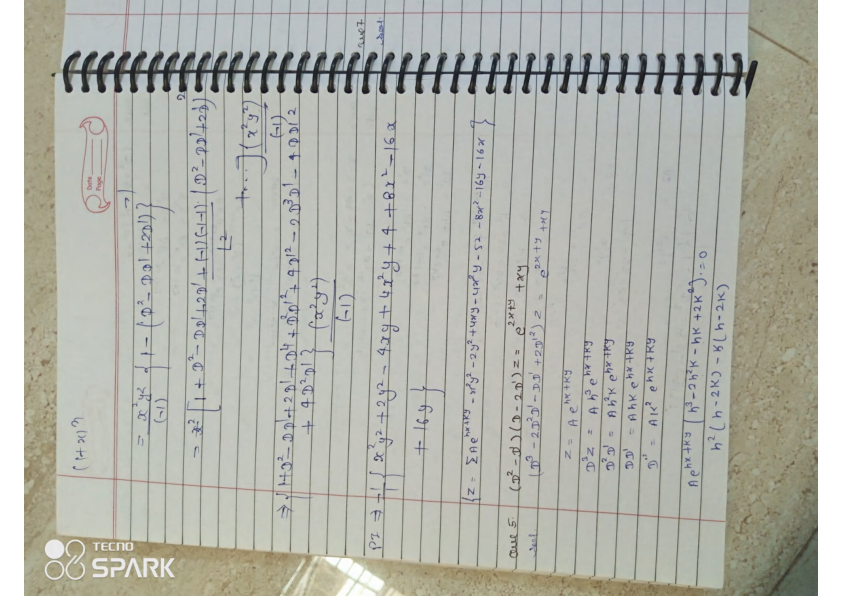 Date
Page
(1+x)ⁿ
= x²y² / (-1) { 1 - (D² - DD' + 2D') }⁻¹
= x² [ 1 + D² - DD' + 2D' + (-1)(-1-1) / ∟2 (D² - DD' + 2D')²
+ .... ] (x²y²) / (-1)
⇒ { 1+D² - DD' + 2D' + D⁴ + D²D'² + 4D'² - 2D³D' - 4DD'²
+ 4D²D' } (x²y²) / (-1)
PI ⇒ -1 { x²y² + 2y² - 4xy + 4x²y + 4 + 8x² - 16x
+ 16y }
{ z = ΣAe^(hx+ky) - x²y² - 2y² + 4xy - 4x²y - 52 - 8x² - 16y - 16x }
Que 5. (D² - D')(D - 2D')z = e^(2x+y) + xy
Sol. (D³ - 2D²D' - DD' + 2D'²)z = e^(2x+y) + xy
z = Ae^(hx+ky)
D³z = Ah³e^(hx+ky)
D²D' = Ah²k e^(hx+ky)
DD' = Ahk e^(hx+ky)
D'² = Ak² e^(hx+ky)
Ae^(hx+ky) (h³ - 2h²k - hk + 2k²) = 0
h²(h-2k) - k(h-2k)
TECNO
SPARK